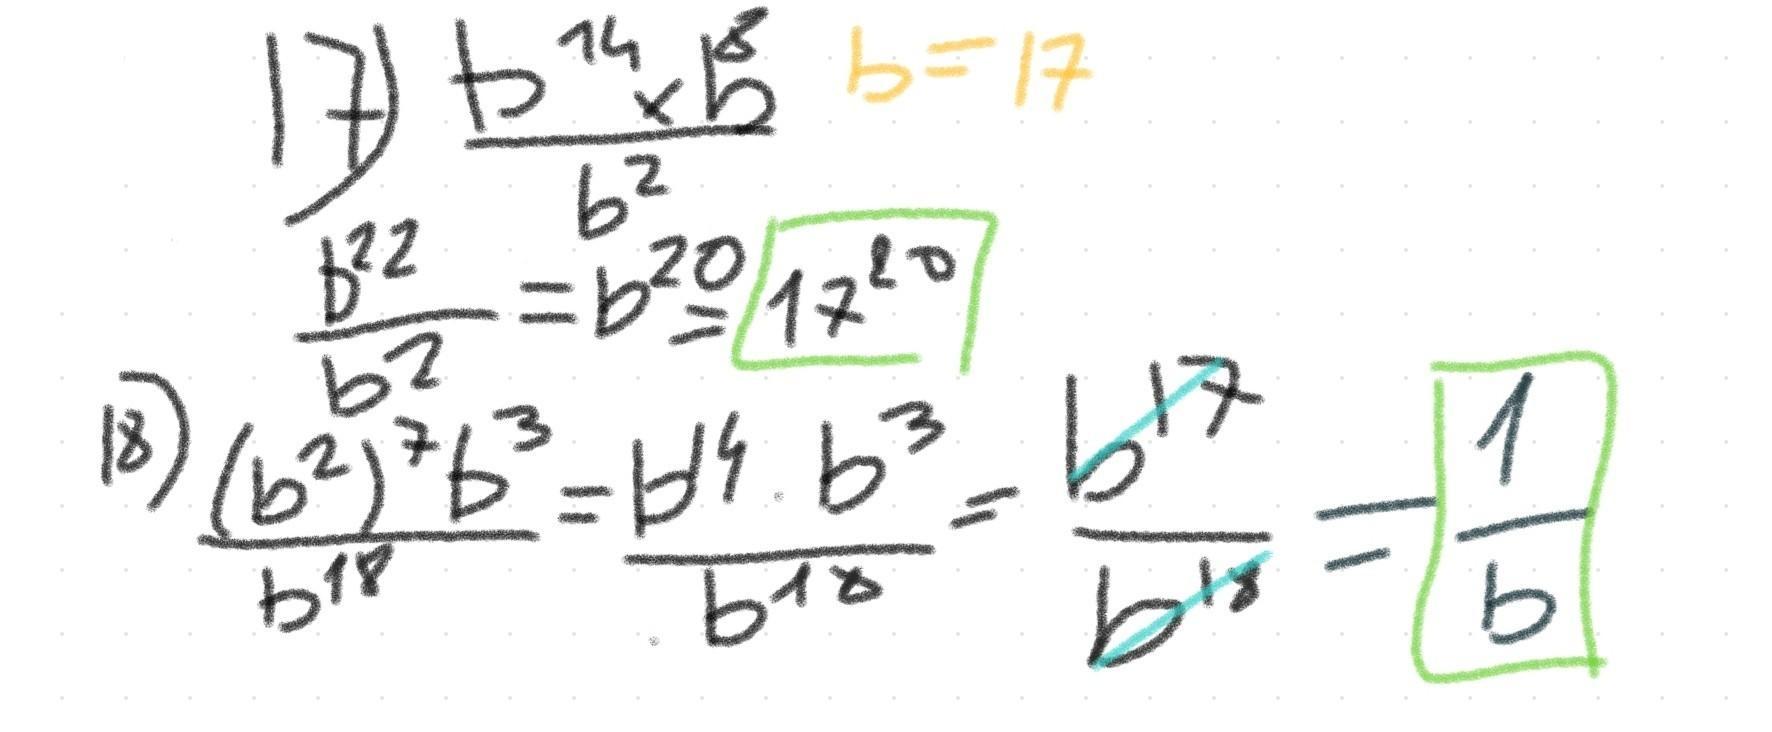 17) b¹⁴ × b⁸ / b² b = 17
b²² / b² = b²⁰ = 17²⁰
18) (b²)⁷ b³ / b¹⁸ = b¹⁴ · b³ / b¹⁸ = b¹⁷ / b¹⁸ = 1 / b